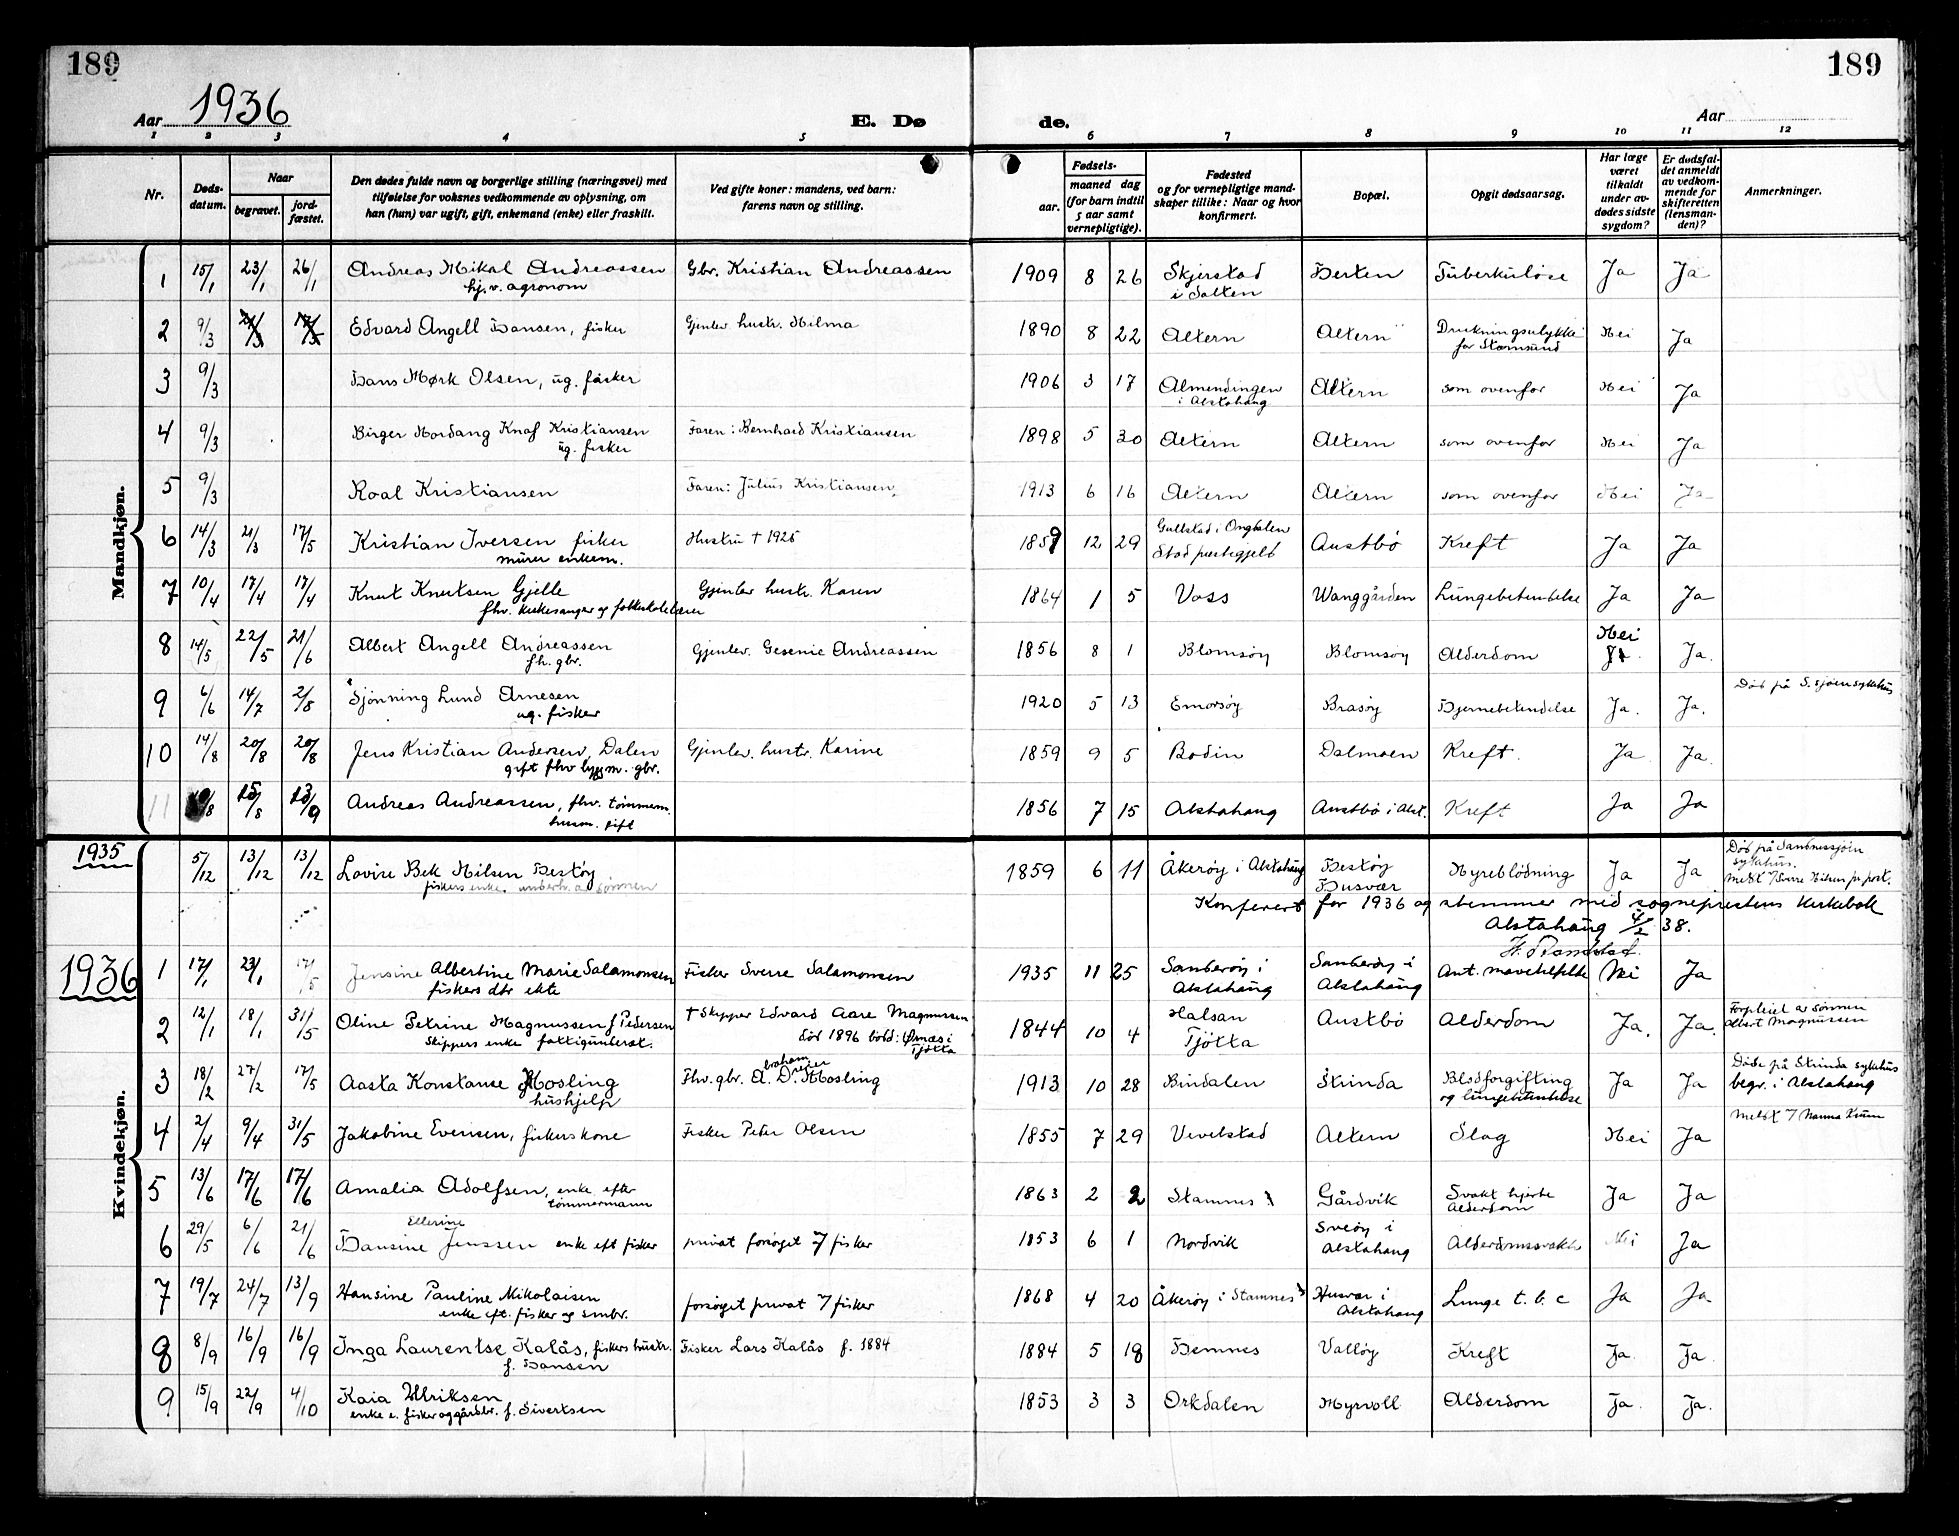 189
189
Aar 1936
E. Dø
de.
Aar
1 2 3 4 5 6 7 8 9 10 11 12
Nr.
Døds-
datum.
Naar
begravet.
jord-
fæstet.
Den dødes fulde navn og borgerlige stilling (næringsvei) med
tilføielse for voksnes vedkommende av oplysning, om
han (hun) var ugift, gift, enkemand (enke) eller fraskilt.
Ved gifte koner: mandens, ved barn:
farens navn og stilling.
Fødsels-
aar.
maaned dag
(for barn indtil
5 aar samt
vernepligtige).
Fødested
og for vernepligtige mand-
skaper tillike: Naar og hvor
konfirmert.
Bopæl.
Opgit dødsaarsag.
Har læge
været
tilkaldt
under av-
dødes sidste
sygdom?
Er dødsfal-
det anmeldt
av vedkom-
mende for
skifteretten
(lensman-
den)?
Anmerkninger.
Mandkjøn.
1 15/1 23/1 26/1 Andreas Mikal Andreassen Gbr. Kristian Andreassen 1909 8 26 Skjerstad Hesten Tuberkuløse Ja Ja
hj.v. agronom i Salten
2 9/3 Edvard Angell Hansen, fisker Gjenlev. hustr. Hilma 1890 8 22 Altern Altern Drukningsulykke Nei Ja
for Stamsund
3 9/3 Hans Mørk Olsen, ug. fisker 1906 3 17 Almendingen Altern som ovenfor Nei Ja
i Alstahaug
4 9/3 Birger Nordang Knaf Kristiansen Faren: Bernhard Kristiansen 1898 5 30 Altern Altern som ovenfor Nei Ja
ug. fisker
5 9/3 Roal Kristiansen Faren: Julius Kristiansen 1913 6 16 Altern Altern som ovenfor Nei Ja
6 14/3 21/3 17/5 Kristian Iversen fisker Hustru † 1925 1859 12 29 Gullstad i Ongdalen Austbø Kreft Ja Ja
murer enkem. Stod prestegjeld
7 10/4 17/4 17/4 Knut Knutsen Gjelle Gjenlev hustr. Karen 1864 1 5 Voss Wanggården Lungebetendelse Ja Ja
fhv. kirkesanger og folkeskolelærer
8 14/5 22/5 21/6 Albert Angell Andreassen Gjenlev. Gesenie Andreassen 1856 8 1 Blomsøy Blomsøy Alderdom Nei Ja.
fh. gbr.
9 6/6 14/7 2/8 Sjønning Lund Arnesen 1920 5 13 Emorsøy Brasøy Hjernebetendelse Ja. Ja. Død på S.sjøen sykehus
ug. fisker
10 14/8 20/8 20/8 Jens Kristian Andersen, Dalen Gjenlev. hustr. Karine 1859 9 5 Bodin Dalmoen Kreft. Ja Ja.
gift fhv byggm. gbr.
11 15/8 13/9 Andreas Andreassen, fhv. tømmerm. 1856 7 15 Alstahaug Austbø i Alst. Kreft Ja Ja
husm. gift
1935
5/12 13/12 13/12 Lovise Bek Nilsen Hestøy 1859 6 11 Åkerøy i Alstahaug Hestøy Hyreblödning Ja Ja Död på Sandnessjøen
fiskers enke. underh. av sønnen Husvær sykehus.
Konferert for 1936 og stemmer med sogneprestens kirkebok
Alstahaug 4/2 38.
Kvindekjøn.
1936
1 17/1 23/1 17/5 Jensine Albertine Marie Salamonsen Fisker Sverre Salamonsen 1935 11 25 Sanderøy i Sanderøy i Ant. mavetilfelle Nei Ja
fiskers dtr ekte Alstahaug Alstahaug
2 12/1 18/1 31/5 Oline Petrine Magnussen f Pedersen † Skipper Edvard Aare Magnussen 1844 10 4 Halsan Austbø Alderdom Ja. Ja. Forpleiet av sønnen
Skippers enke fattigunderst. död 1896 bold: Ørnæs i Tjøtta Tjötta Albert Magnussen
3 18/2 27/2 17/5 Aasta Konstanse Mosling Fhv. gbr. Abraham Dreier Mosling 1913 10 28 Bindalen Strinda Blodforgifting Ja Ja Döde på Strinda sykehus
hushjelp og lungebetendelse begr. i Alstahaug
4 2/4 9/4 31/5 Jakobine Evensen, fiskerskone Fisker Peter Olsen 1855 7 29 Vevelstad Altern Slag Nei Ja
5 13/6 17/6 17/6 Amalia Adolfsen, enke efter 1863 2 2 Stamnes Gårdvik Svakt hjerte Ja Ja
tömmermann Alderdom
6 29/5 6/6 21/6 Hansine Ellerine Jenssen enke eft fisker privat forsörget fisker 1853 6 1 Nordvik Svëøy i Alderdomssvakh. Nei Ja
Alstahaug
7 19/7 24/7 13/9 Hansine Pauline Nikolaisen forsörget privat fisker 1868 4 20 Åkerøy i Stamnes Husvær i Lunge t. b. c Ja Ja
enke eft. fisker og smbr. Alstahaug
8 8/9 16/9 16/9 Inga Laurentse Kalås, fiskers hustr. Fisker Lars Kalås f. 1884 1884 5 18 Hemnes Valløy Kreft Ja. Ja.
f. Hansen
9 15/9 22/9 4/10 Kaia Ulriksen 1853 3 3 Orkdalen Myrvoll Alderdom Ja. Ja.
enke e. fisker og gårdbr. f. Sivertsen